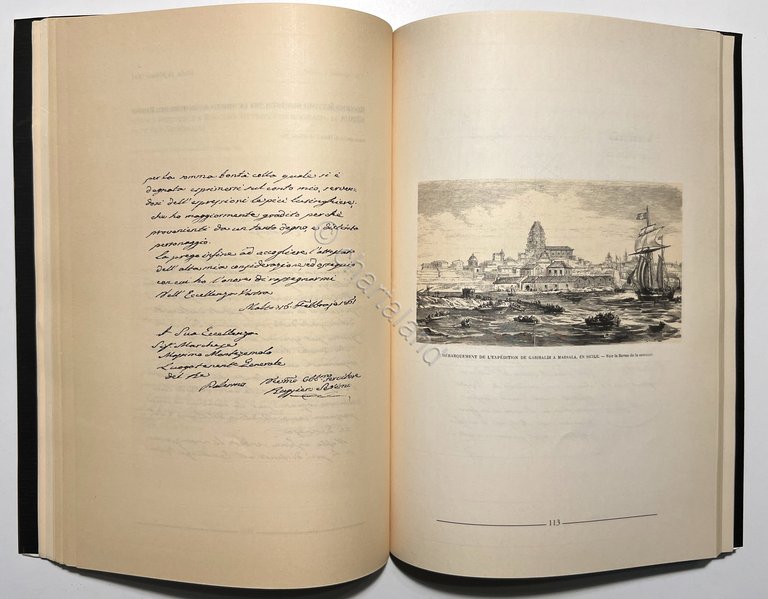 per la somma bontà colla quale si è
degnata esprimersi sul conto mio, serven-
dosi dell'espressioni le più lusinghiere,
che ho maggiormente gradito perchè
provenienti da un tanto degno, e distinto
personaggio.
La prego infine ad accogliere l'attestato
dell'alta mia considerazione ed ossequio
con cui ho l'onore di rassegnarmi
Dell'Eccellenza Vostra
Malta 16 Febbrajo 61
A Sua Eccellenza
Sigr. Marchese
Massimo Montezemolo
Luogotenente Generale
del Re
Palermo
Servitore
Ruggiero
DÉBARQUEMENT DE L'EXPÉDITION DE GARIBALDI A MARSALA, EN SICILE. — Voir la Revue de la semaine.
113
©